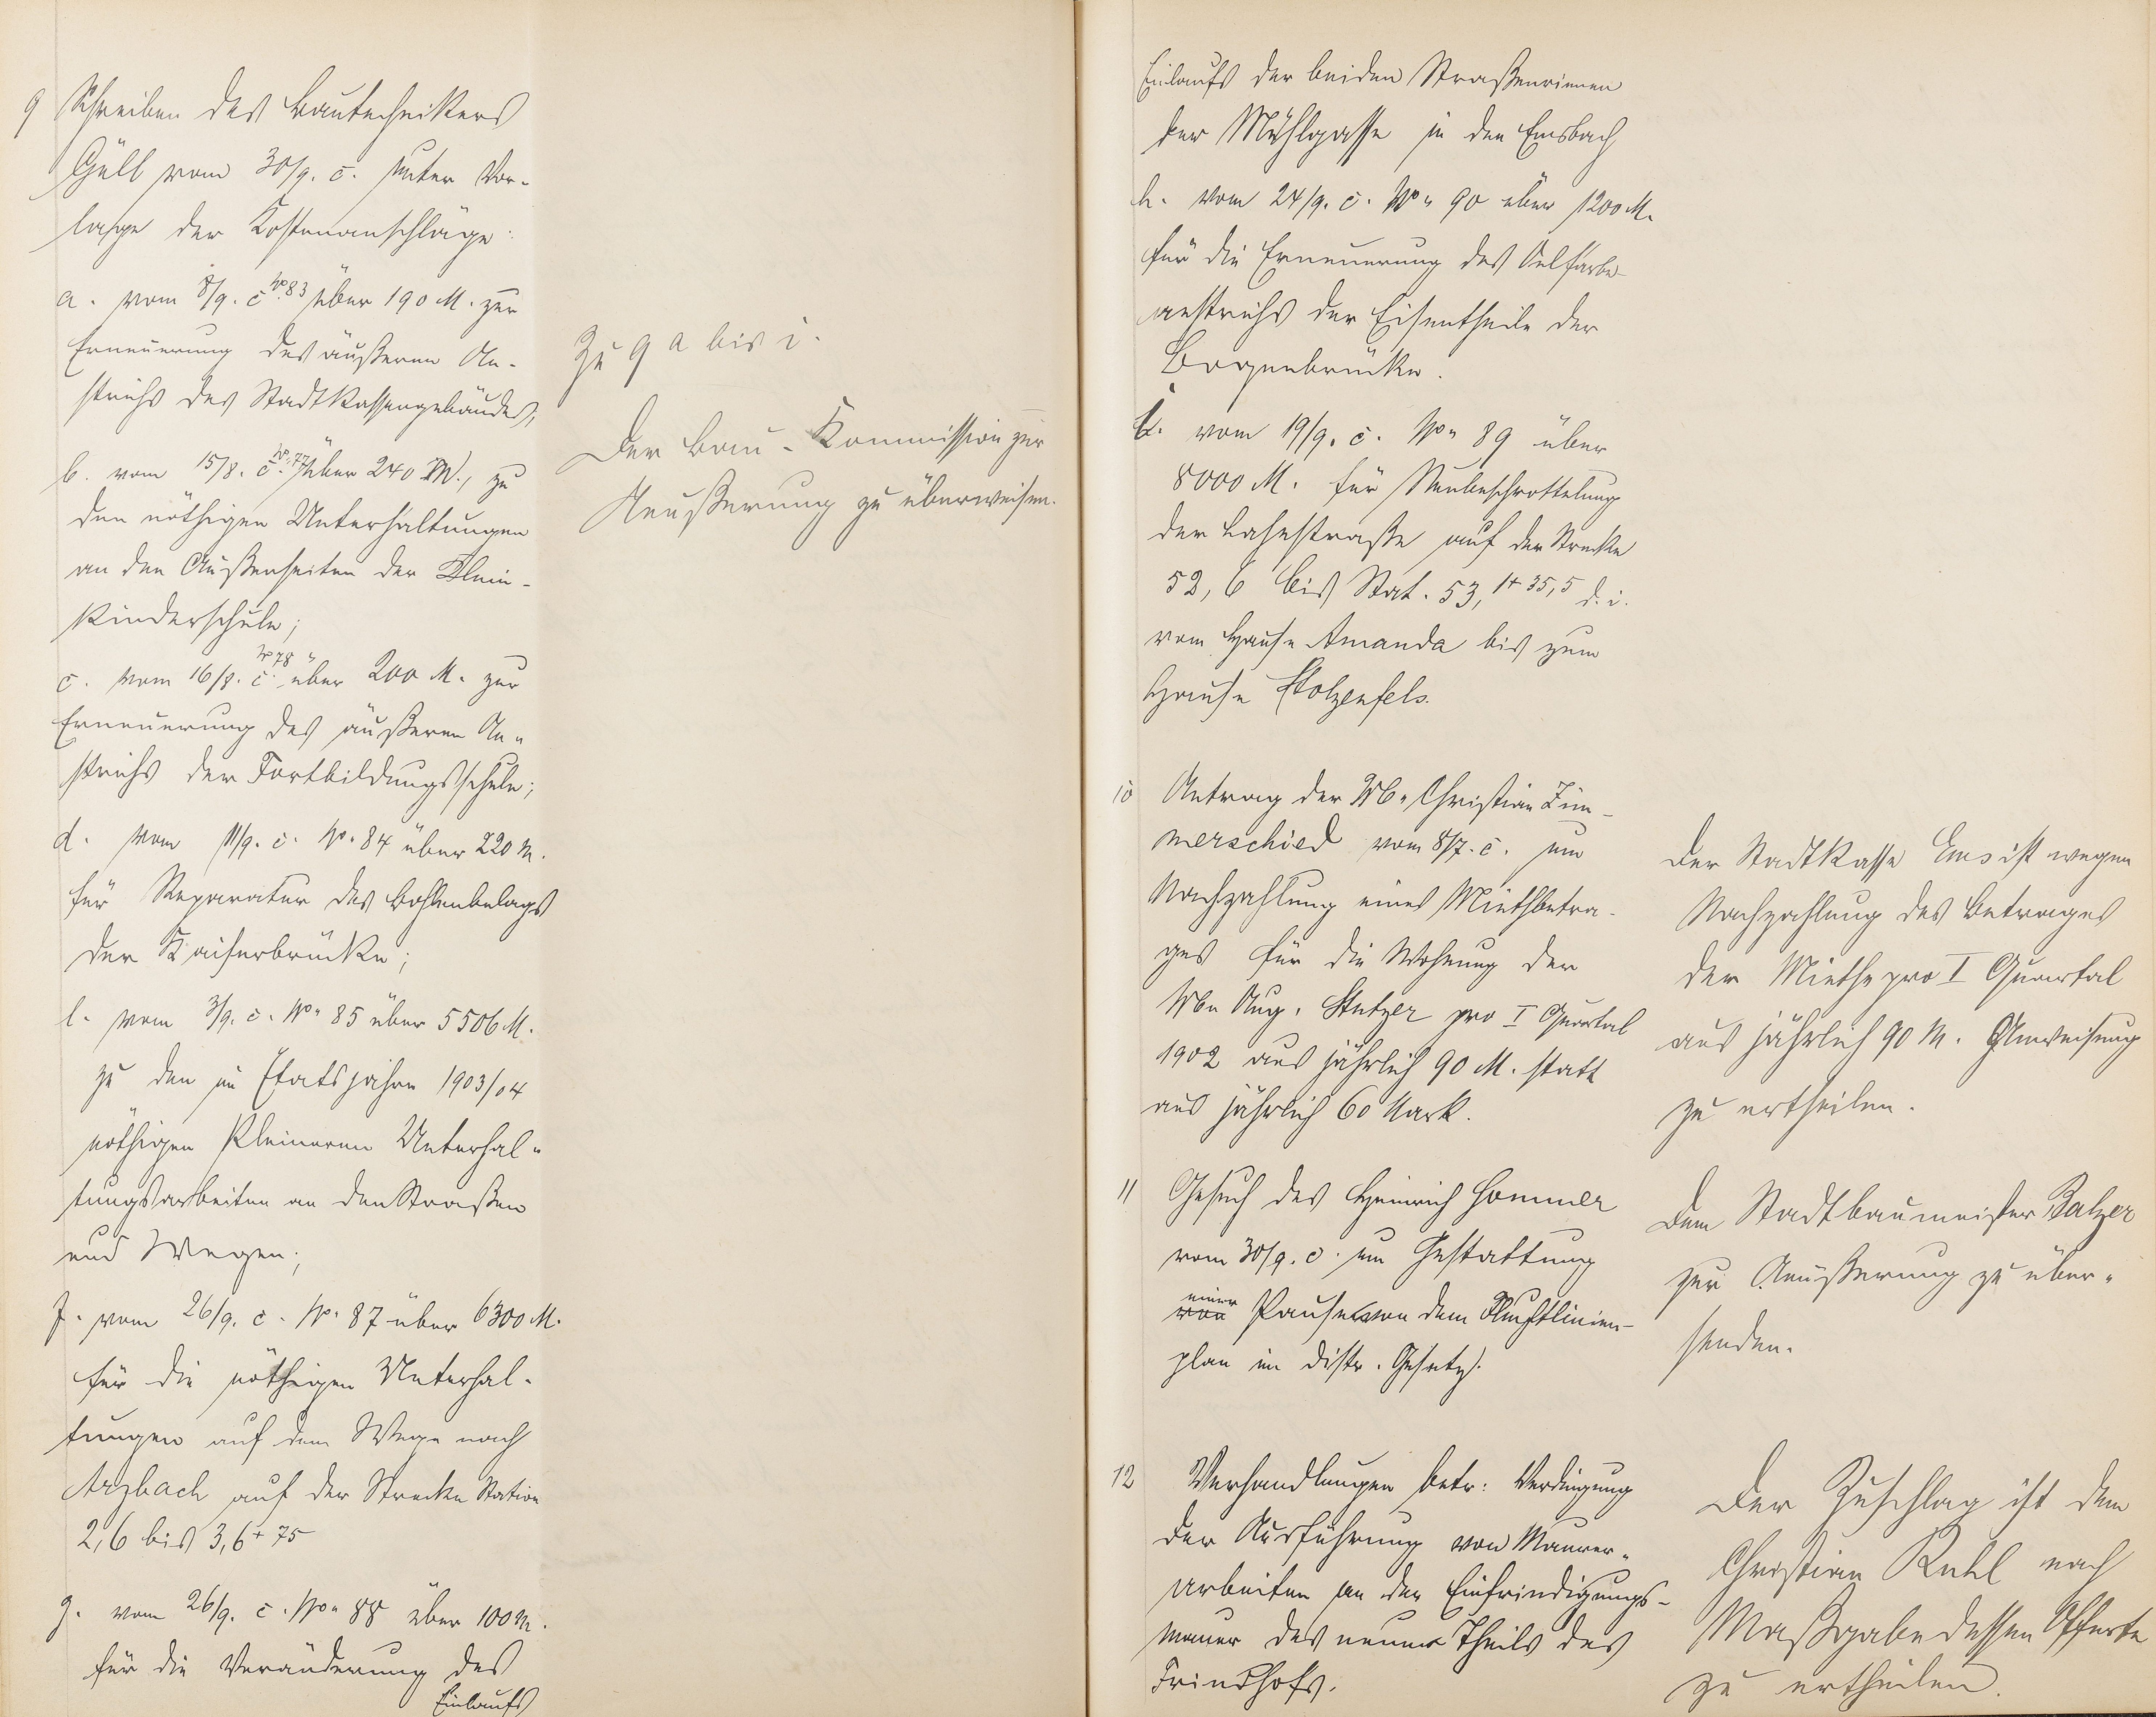 9 Schreiben des Bautechnikers
Güll vom 30/9. c. unter Vor-
lage der Kostenanschläge:
a. vom 8/9. c. No. 83 über 190 M. zur
Erneuerung des äußeren An-
strichs des Stadtkassengebäudes,
b. vom 15/8. c. No. 77 über 240 M., zu
den nöthigen Unterhaltungen
an den Außenseiten der Klein-
kinderschule;
c. vom 16/8. c. No 78 über 200 M. zur
Erneuerung des äußeren An-
strichs der Fortbildungsschule;
d. vom 11/9. c. No. 84 über 220 M.
für Reparatur des Bohlenbelags
der Kaiserbrücke;
e. vom 3/9. c. No. 85 über 5506 M.
zu den im Etatsjahre 1903/04
nöthigen kleineren Unterhal-
tungsarbeiten an den Straßen
und Wegen;
f. vom 26/9. c. No. 87 über 6300 M.
für die nöthigen Unterhal-
tungen auf dem Wege nach
Arzbach auf der Strecke Station
2,6 bis 3,6 + 75
g. vom 26/9. c. No. 88 über 100 M.
für die Veränderung des
Einlaufs
Zu 9 a bis i.
Der Bau-Kommission zur
Aeußerung zu überweisen.
Einlaufs der beiden Straßenrinnen
der Mühlgasse in den Emsbach
h. vom 24/9. c. No. 90 über 1200 M.
für die Erneuerung des Oelfarbe-
anstrichs der Eisentheile der
Bogenbrücke.
i. vom 19/9. c. No. 89 über
8000 M. für Neubeschrottelung
der Lahnstraße auf der Strecke
52,6 bis Stat. 53,1 + 35,5 d. i.
vom Hause Amanda bis zum
Hause Stolzenfels.
10 Antrag der Wb. Christian Zim-
merschied vom 8/7. c. um
Nachzahlung eines Miethbetra-
ges für die Wohnung der
Wb. Aug. Stutzer pro I Quartal
1902 aus jährlich 90 M. statt
aus jährlich 60 Mark.
Der Stadtkasse Ems ist wegen
Nachzahlung des Betrages
der Miethe pro I Quartal
aus jährlich 90 M. Anweisung
zu ertheilen.
11 Gesuch des Heinrich Hommer
vom 30/9. c. um Gestattung
einer
von Pause von dem Fluchtlinien-
plan im distr. Gesetz.
Dem Stadtbaumeister Balzer
zur Aeußerung zu über-
senden.
12 Verhandlungen betr: Verdingung
der Ausführung von Maurer-
arbeiten an der Einfriedigungs-
mauer des neuen Theils des
Friedhofs.
Der Zuschlag ist dem
Christian Ruhl nach
Maßgabe dessen Offerte
zu ertheilen.